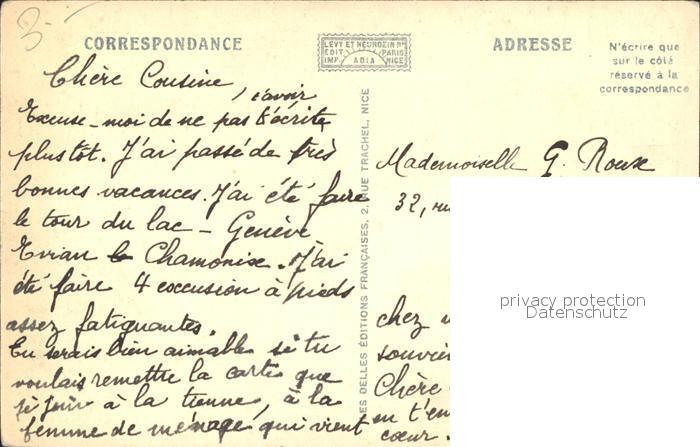 3-
CORRESPONDANCE
LÉVY ET NEURDEIN RÉ
EDIT. PARIS
IMP. ADIA NICE
ADRESSE
N'écrire que
sur le côté
réservé à la
correspondance
Chère Cousine
t'avoir
Excuse-moi de ne pas t'écrite
plus tot. J'ai passé de très
bonnes vacances. J'ai été faire
le tour du lac - Genève
Evian Chamonix. J'ai
été faire 4 excusion à pieds
assez fatiguantes.
Tu serais bien aimable si tu
voulais remettre la carte que
je à la tienne, à la
femme de ménage, qui vient
LES BELLES ÉDITIONS FRANÇAISES, 2, RUE TRACHEL, NICE
Mademoiselle G. Roux
32, ru
chez
souvie
Chère
en t'en
cœur.
privacy protection
Datenschutz